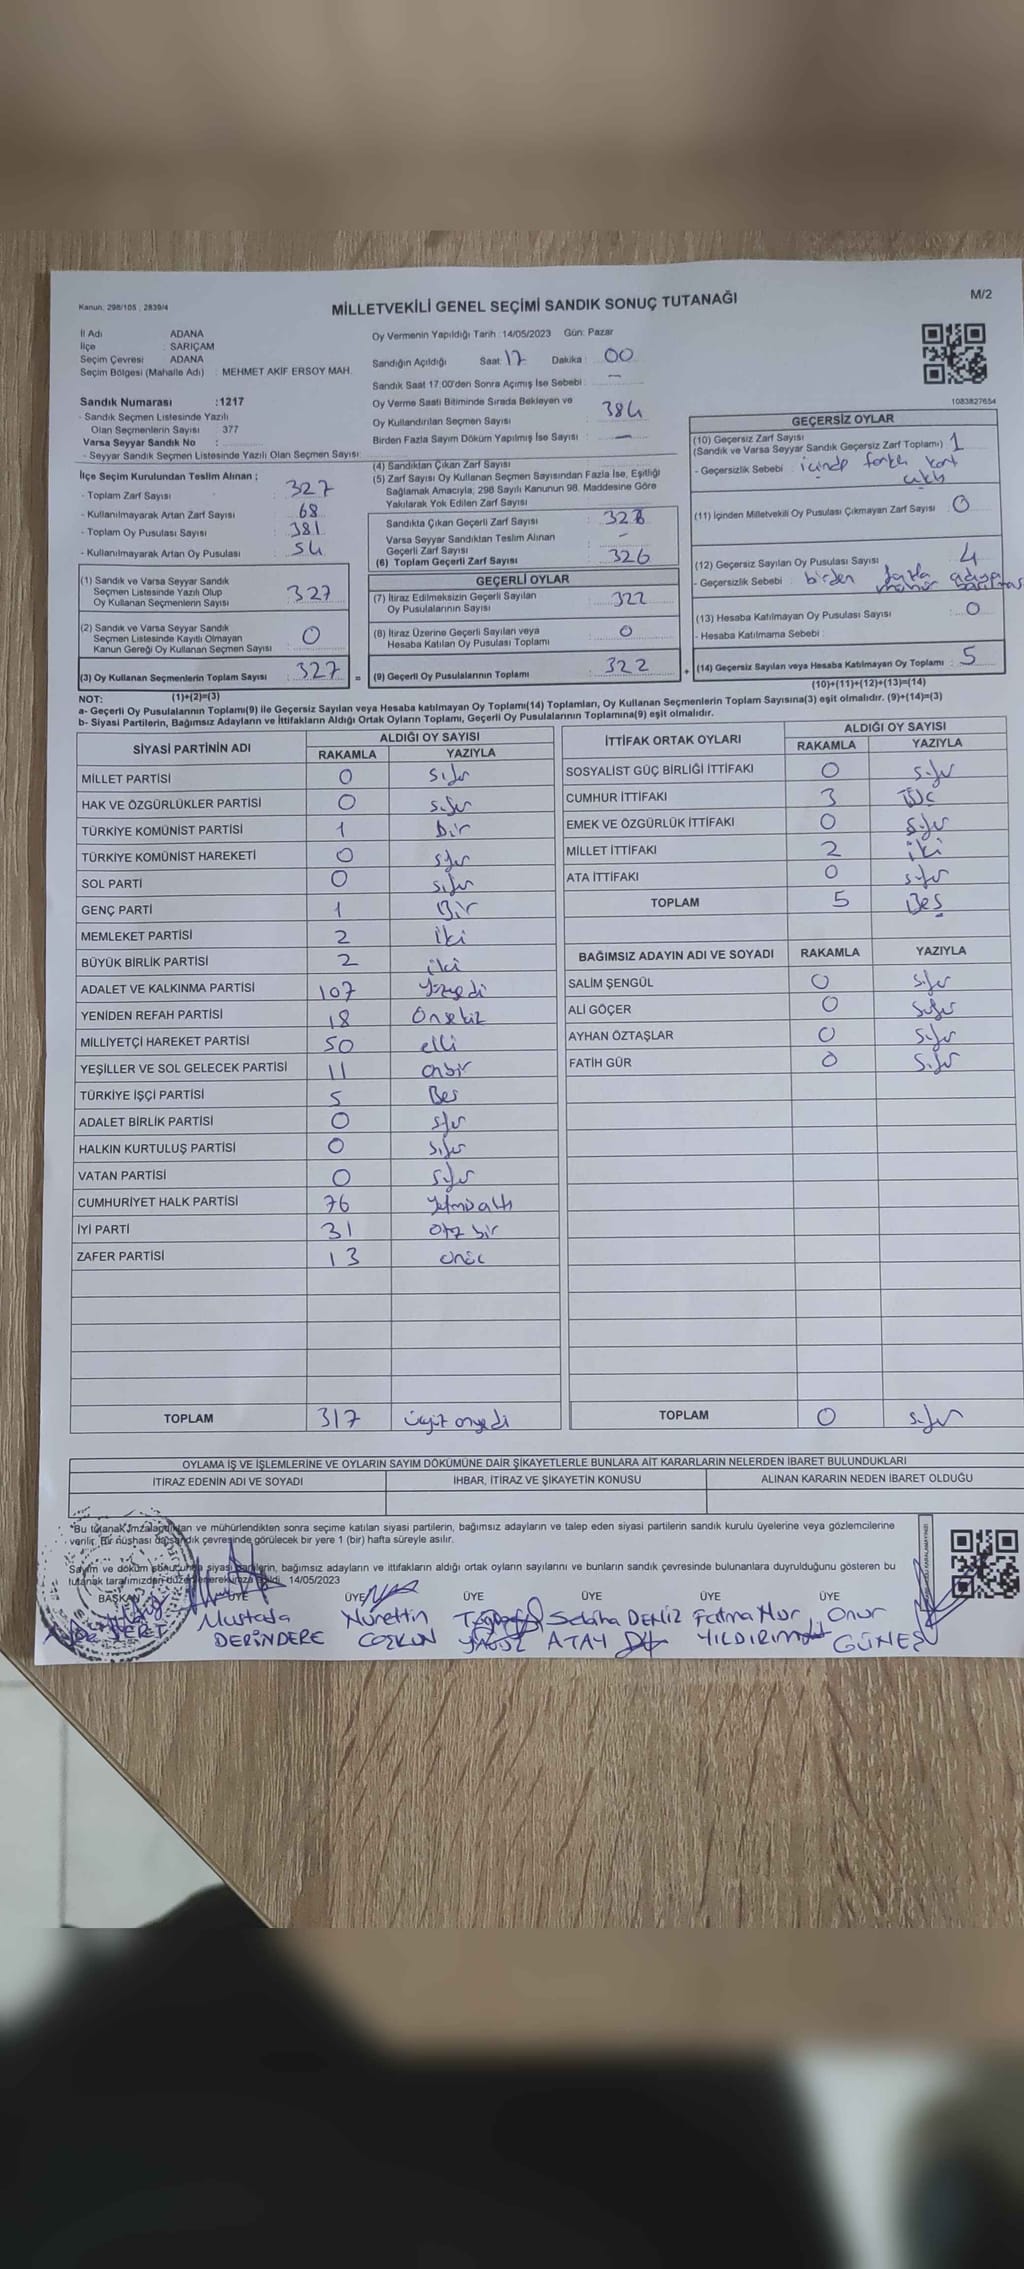 Kanun, 298/105 ; 2839/4
MİLLETVEKİLİ GENEL SEÇİMİ SANDIK SONUÇ TUTANAĞI
M/2
İl Adı ADANA
İlçe : SARIÇAM
Seçim Çevresi : ADANA
Seçim Bölgesi (Mahalle Adı) : MEHMET AKİF ERSOY MAH.
Sandık Numarası :1217
- Sandık Seçmen Listesinde Yazılı
Olan Seçmenlerin Sayısı : 377
Varsa Seyyar Sandık No :
- Seyyar Sandık Seçmen Listesinde Yazılı Olan Seçmen Sayısı:
Oy Vermenin Yapıldığı Tarih : 14/05/2023 Gün: Pazar
Sandığın Açıldığı Saat: 17 Dakika : 00
Sandık Saat 17:00'den Sonra Açımış İse Sebebi : —
Oy Verme Saati Bitiminde Sırada Bekleyen ve
Oy Kullandırılan Seçmen Sayısı : 384
Birden Fazla Sayım Döküm Yapılmış İse Sayısı : —
1083827654
İlçe Seçim Kurulundan Teslim Alınan ;
- Toplam Zarf Sayısı : 327
- Kullanılmayarak Artan Zarf Sayısı : 68
- Toplam Oy Pusulası Sayısı : 381
- Kullanılmayarak Artan Oy Pusulası : 54
(1) Sandık ve Varsa Seyyar Sandık
Seçmen Listesinde Yazılı Olup
Oy Kullanan Seçmenlerin Sayısı : 327
(2) Sandık ve Varsa Seyyar Sandık
Seçmen Listesinde Kayıtlı Olmayan
Kanun Gereği Oy Kullanan Seçmen Sayısı : 0
(3) Oy Kullanan Seçmenlerin Toplam Sayısı : 327 =
(4) Sandıktan Çıkan Zarf Sayısı :
(5) Zarf Sayısı Oy Kullanan Seçmen Sayısından Fazla İse, Eşitliği
Sağlamak Amacıyla, 298 Sayılı Kanunun 98. Maddesine Göre
Yakılarak Yok Edilen Zarf Sayısı :
Sandıkta Çıkan Geçerli Zarf Sayısı : 326
Varsa Seyyar Sandıktan Teslim Alınan
Geçerli Zarf Sayısı : -
(6) Toplam Geçerli Zarf Sayısı : 326
GEÇERLİ OYLAR
(7) İtiraz Edilmeksizin Geçerli Sayılan
Oy Pusulalarının Sayısı : 322
(8) İtiraz Üzerine Geçerli Sayılan veya
Hesaba Katılan Oy Pusulası Toplamı : 0
(9) Geçerli Oy Pusulalarının Toplamı : 322 +
GEÇERSİZ OYLAR
(10) Geçersiz Zarf Sayısı
(Sandık ve Varsa Seyyar Sandık Geçersiz Zarf Toplamı) : 1
- Geçersizlik Sebebi : içinde farklı kart
çıktı
(11) İçinden Milletvekili Oy Pusulası Çıkmayan Zarf Sayısı : 0
(12) Geçersiz Sayılan Oy Pusulası Sayısı : 4
- Geçersizlik Sebebi : birden fazla adaya
mühür basılması
(13) Hesaba Katılmayan Oy Pusulası Sayısı : 0
- Hesaba Katılmama Sebebi :
(14) Geçersiz Sayılan veya Hesaba Katılmayan Oy Toplamı : 5
NOT: (1)+(2)=(3)
(10)+(11)+(12)+(13)=(14)
a- Geçerli Oy Pusulalarının Toplamı(9) ile Geçersiz Sayılan veya Hesaba katılmayan Oy Toplamı(14) Toplamları, Oy Kullanan Seçmenlerin Toplam Sayısına(3) eşit olmalıdır. (9)+(14)=(3)
b- Siyasi Partilerin, Bağımsız Adayların ve İttifakların Aldığı Ortak Oyların Toplamı, Geçerli Oy Pusulalarının Toplamına(9) eşit olmalıdır.
SİYASİ PARTİNİN ADI ALDIĞI OY SAYISI
RAKAMLA YAZIYLA
MİLLET PARTİSİ 0 Sıfır
HAK VE ÖZGÜRLÜKLER PARTİSİ 0 sıfır
TÜRKİYE KOMÜNİST PARTİSİ 1 bir
TÜRKİYE KOMÜNİST HAREKETİ 0 sıfır
SOL PARTİ 0 sıfır
GENÇ PARTİ 1 Bir
MEMLEKET PARTİSİ 2 İki
BÜYÜK BİRLİK PARTİSİ 2 iki
ADALET VE KALKINMA PARTİSİ 107 yüzyedi
YENİDEN REFAH PARTİSİ 18 Onsekiz
MİLLİYETÇİ HAREKET PARTİSİ 50 elli
YEŞİLLER VE SOL GELECEK PARTİSİ 11 onbir
TÜRKİYE İŞÇİ PARTİSİ 5 Beş
ADALET BİRLİK PARTİSİ 0 sıfır
HALKIN KURTULUŞ PARTİSİ 0 sıfır
VATAN PARTİSİ 0 sıfır
CUMHURİYET HALK PARTİSİ 76 yetmişaltı
İYİ PARTİ 31 Otuz bir
ZAFER PARTİSİ 13 onüç
TOPLAM 317 üçyüz onyedi
İTTİFAK ORTAK OYLARI ALDIĞI OY SAYISI
RAKAMLA YAZIYLA
SOSYALİST GÜÇ BİRLİĞİ İTTİFAKI 0 sıfır
CUMHUR İTTİFAKI 3 Üç
EMEK VE ÖZGÜRLÜK İTTİFAKI 0 sıfır
MİLLET İTTİFAKI 2 iki
ATA İTTİFAKI 0 sıfır
TOPLAM 5 Beş
BAĞIMSIZ ADAYIN ADI VE SOYADI RAKAMLA YAZIYLA
SALİM ŞENGÜL 0 sıfır
ALİ GÖÇER 0 sıfır
AYHAN ÖZTAŞLAR 0 sıfır
FATİH GÜR 0 sıfır
TOPLAM 0 sıfır
OYLAMA İŞ VE İŞLEMLERİNE VE OYLARIN SAYIM DÖKÜMÜNE DAİR ŞİKAYETLERLE BUNLARA AİT KARARLARIN NELERDEN İBARET BULUNDUKLARI
İTİRAZ EDENİN ADI VE SOYADI İHBAR, İTİRAZ VE ŞİKAYETİN KONUSU ALINAN KARARIN NEDEN İBARET OLDUĞU
*Bu tutanak imzalandıktan ve mühürlendikten sonra seçime katılan siyasi partilerin, bağımsız adayların ve talep eden siyasi partilerin sandık kurulu üyelerine veya gözlemcilerine
verilir. Bir nüshası da sandık çevresinde görülecek bir yere 1 (bir) hafta süreyle asılır.
Sayım ve döküm sonucunda siyasi partilerin, bağımsız adayların ve ittifakların aldığı ortak oyların sayılarını ve bunların sandık çevresinde bulunanlara duyrulduğunu gösteren bu
tutanak tarafımızdan düzenlenerek imza edildi. 14/05/2023
BAŞKAN ÜYE ÜYE ÜYE ÜYE ÜYE ÜYE
Mustafa Nurettin Saliha DENİZ Fatma Nur Onur
DERİNDERE COŞKUN YAĞIZ ATAY YILDIRIM GÜNEŞ